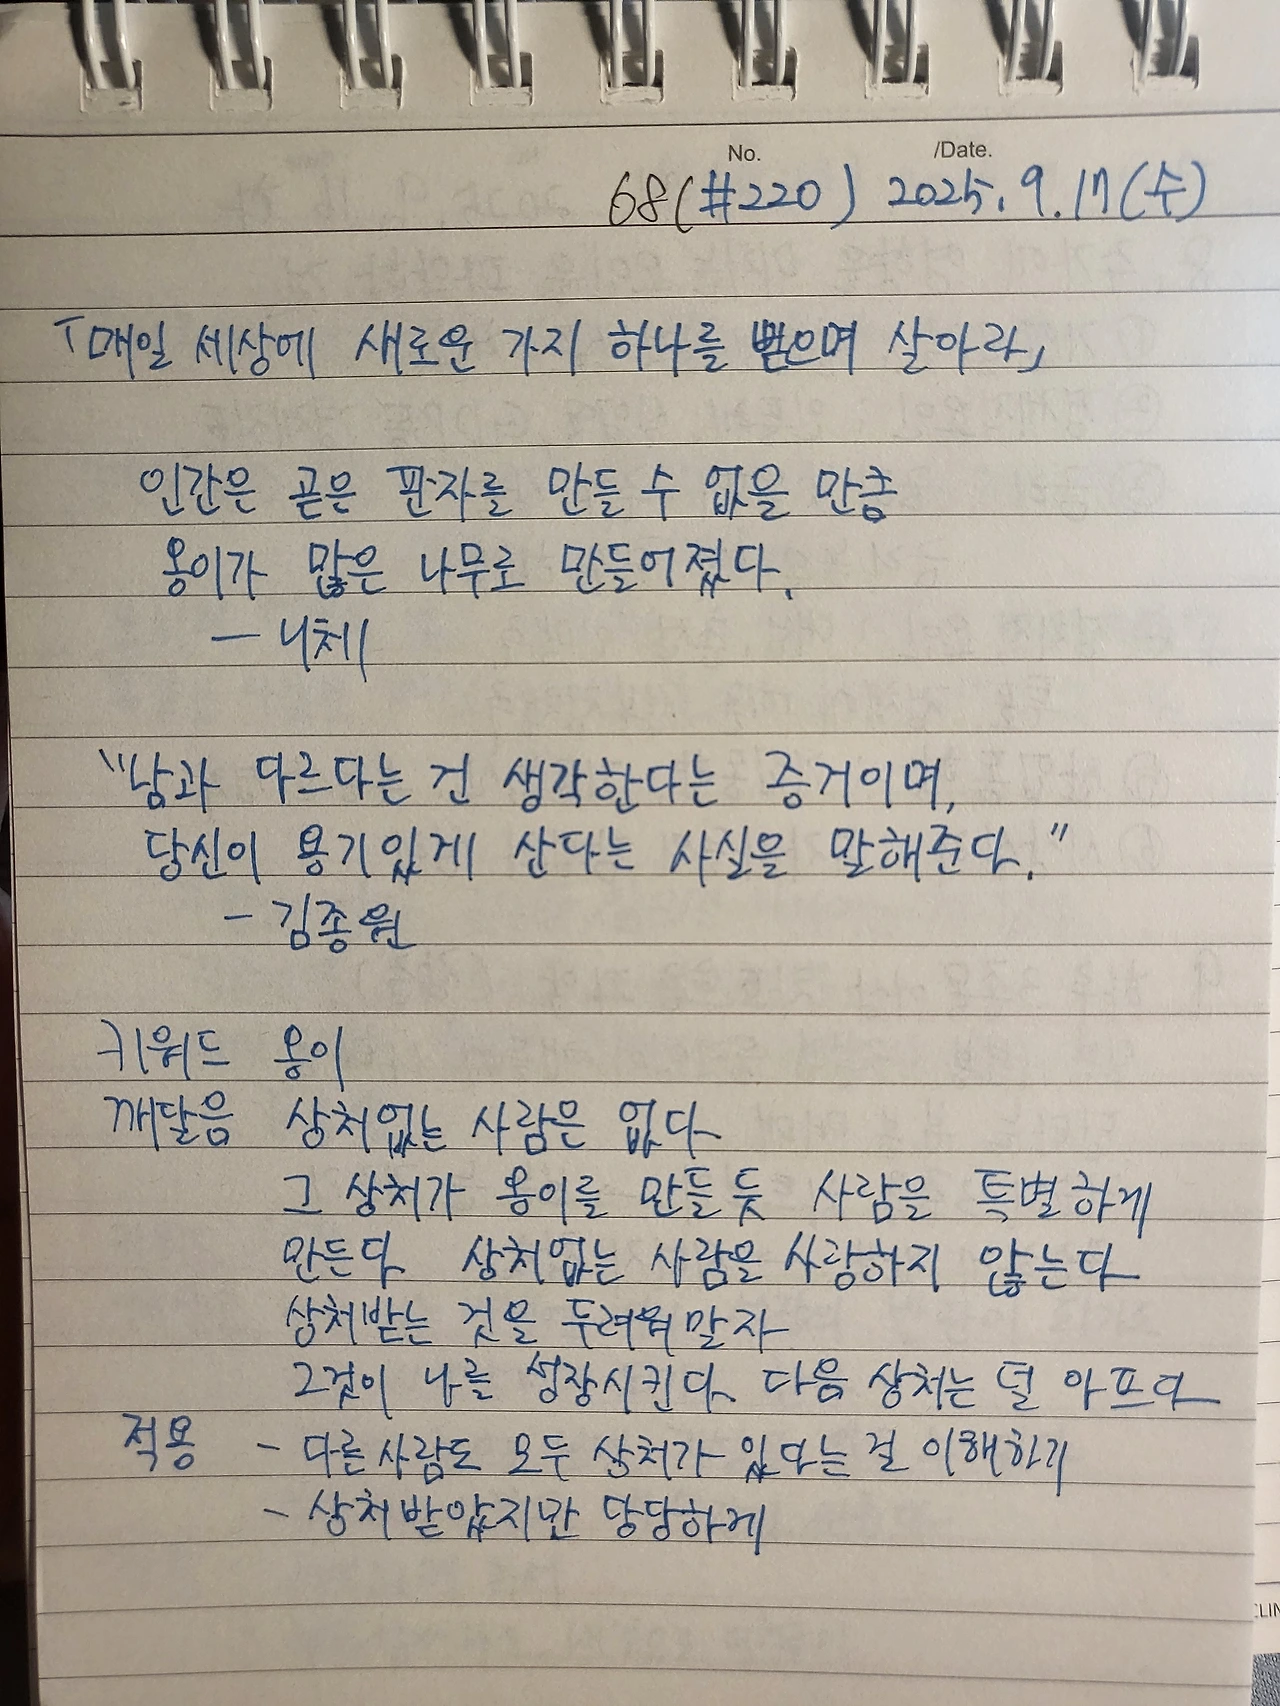 No. /Date.
68(#220) 2025. 9. 17(수)
「매일 세상에 새로운 가지 하나를 뻗으며 살아라」
인간은 곧은 판자를 만들 수 없을 만큼
옹이가 많은 나무로 만들어졌다.
— 니체
"남과 다르다는 건 생각한다는 증거이며,
당신이 용기있게 산다는 사실을 말해준다."
- 김종원
키워드 옹이
깨달음 상처없는 사람은 없다
그 상처가 옹이를 만들듯 사람을 특별하게
만든다 상처없는 사람을 사랑하지 않는다
상처받는 것을 두려워말자
그것이 나를 성장시킨다 다음 상처는 덜 아프다
적용 - 다른사람도 모두 상처가 있다는 걸 이해하기
- 상처받았지만 당당하게